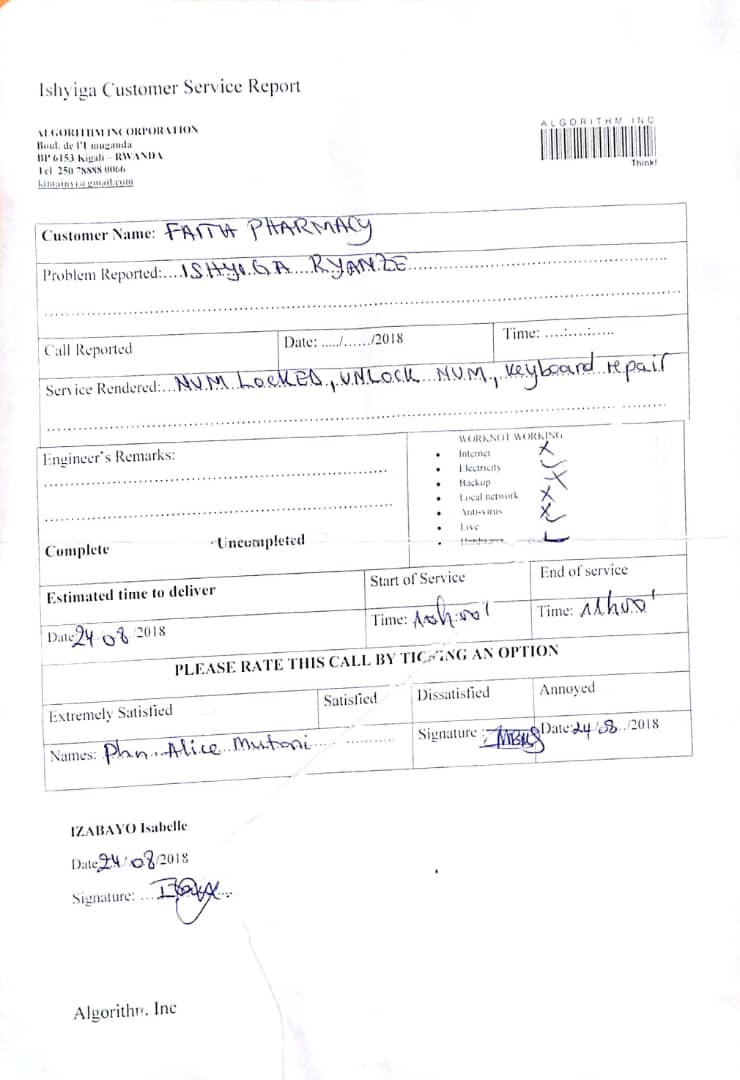 Ishyiga Customer Service Report
ALGORITHM INC
Think!
ALGORITHM INCORPORATION
Boul. de l'Umuganda
BP 6153 Kigali – RWANDA
Tel 250 78888 0066
Customer Name: FAITH PHARMACY
Problem Reported:...ISHYIGA RYANZE
Call Reported Date: ...../....../2018 Time: ....:....:.....
Service Rendered:...NUM LOCKED, UNLOCK NUM, keyboard repair
Engineer's Remarks:
WORKNOT WORKING
Internet X
Electricity
Backup X
Local network X
Anti-virus X
Live
Hardware
Complete Uncompleted
Estimated time to deliver Start of Service End of service
Date 24 08 2018 Time: Time: 11h00'
PLEASE RATE THIS CALL BY TICKING AN OPTION
Extremely Satisfied Satisfied Dissatisfied Annoyed
Names: Phn. Alice Mutoni Signature: Date: 24/08/2018
IZABAYO Isabelle
Date 24/08/2018
Signature: ...
Algorithm, Inc